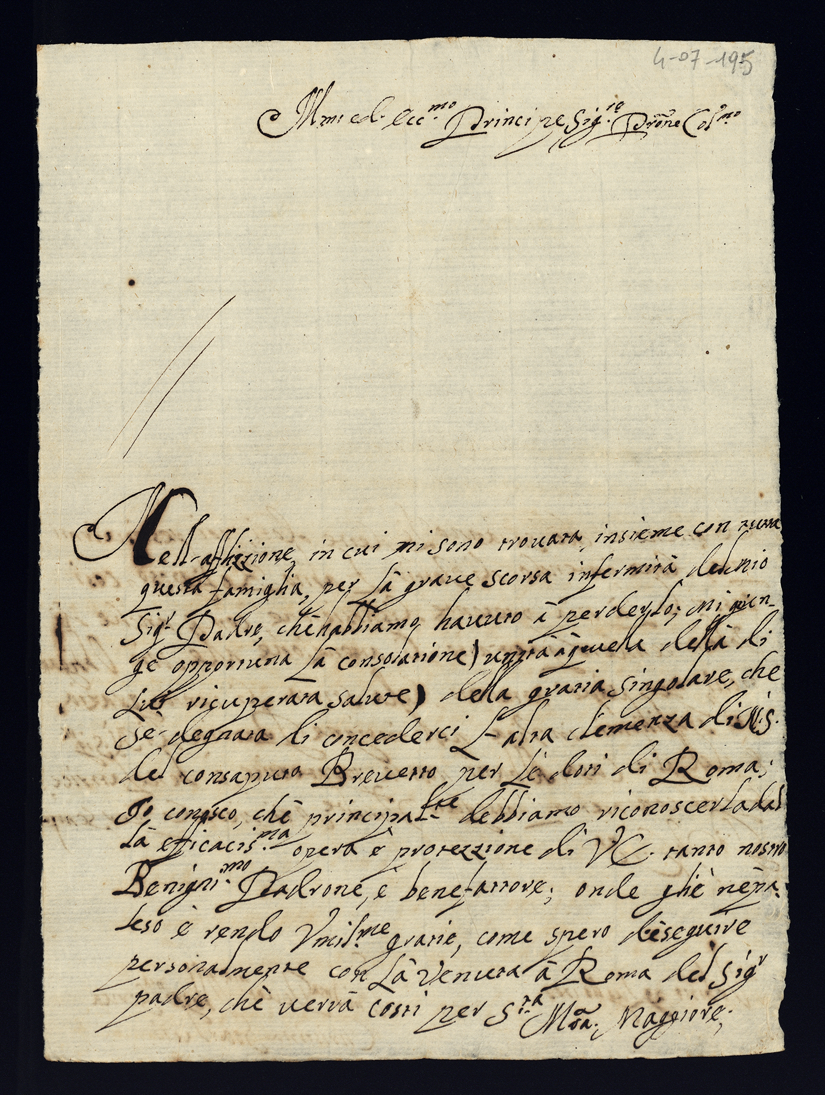 4-07-195
Ill.mo ed Ecc.mo Principe Sig.re Prône Col.mo
Nell'afflizione, in cui mi sono trovata, insieme con tutta
questa famiglia, per là grave scorsa infermità del mio
Sig.r Padre, chè habbiamo havuto à perderlo; mi giun-
gè opportuna là consolatione) unita à quella dellà di
lui ricuperata salute) della gratia singolare, che
sè degnata di concederci l'alta clemenza di N.S.
del consaputo Brevetto per lè doti di Roma;
Io conosco, chè principal.te debbiamo riconoscerla dal
là efficacis.ma opera è protezzione di V.E. tanto nostro
Benigni.mo Padrone, è benefattore; onde gliè nè pa-
leso è rendo Umil.me gratie, come spero d'eseguire
personalmente con là venuta à Roma del Sig.r
padre, chè verrà costì per S.ta M.a Maggiore;